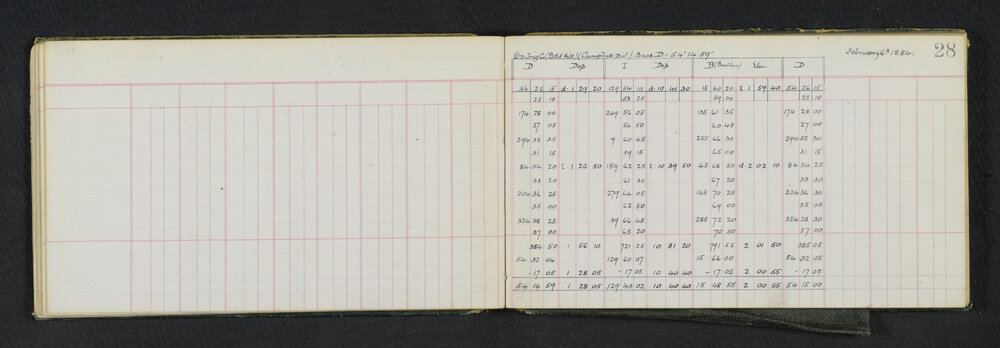 February 6th 1884. 28
On Trig C (Bold Hill) (Campbell Div.) Back D = 54° 14' 59"
D Dep I Dep B (Boulder) Elev D
54 26 15 d·1 29 20 129 54 10 d·10 41 30 15 60 20 E 1 59 40 54 26 15
25 10 53 25 59 00 25 10
174 28 00 249 56 05 135 61 35 174 28 00
27 05 54 50 60 45 27 00
294 32 35 9 60 45 255 66 30 294 32 30
31 15 59 15 65 00 31 15
84 34 20 E·1 26 50 159 62 25 E 10 39 50 45 68 50 d·2 02 10 84 34 25
33 20 61 30 67 20 33 30
204 36 25 279 64 05 165 70 25 204 36 30
35 00 62 50 69 00 35 00
324 38 25 39 66 45 285 72 20 324 38 30
37 00 65 20 70 50 37 00
384 50 1 56 10 721 25 10 81 20 791 55 2 01 50 385 05
54 32 04 129 60 07 15 66 00 54 32 05
-17 05 1 28 05 -17 05 10 40 40 -17 05 2 00 55 -17 05
54 14 59 1 28 05 129 43 02 10 40 40 15 48 55 2 00 55 54 15 00